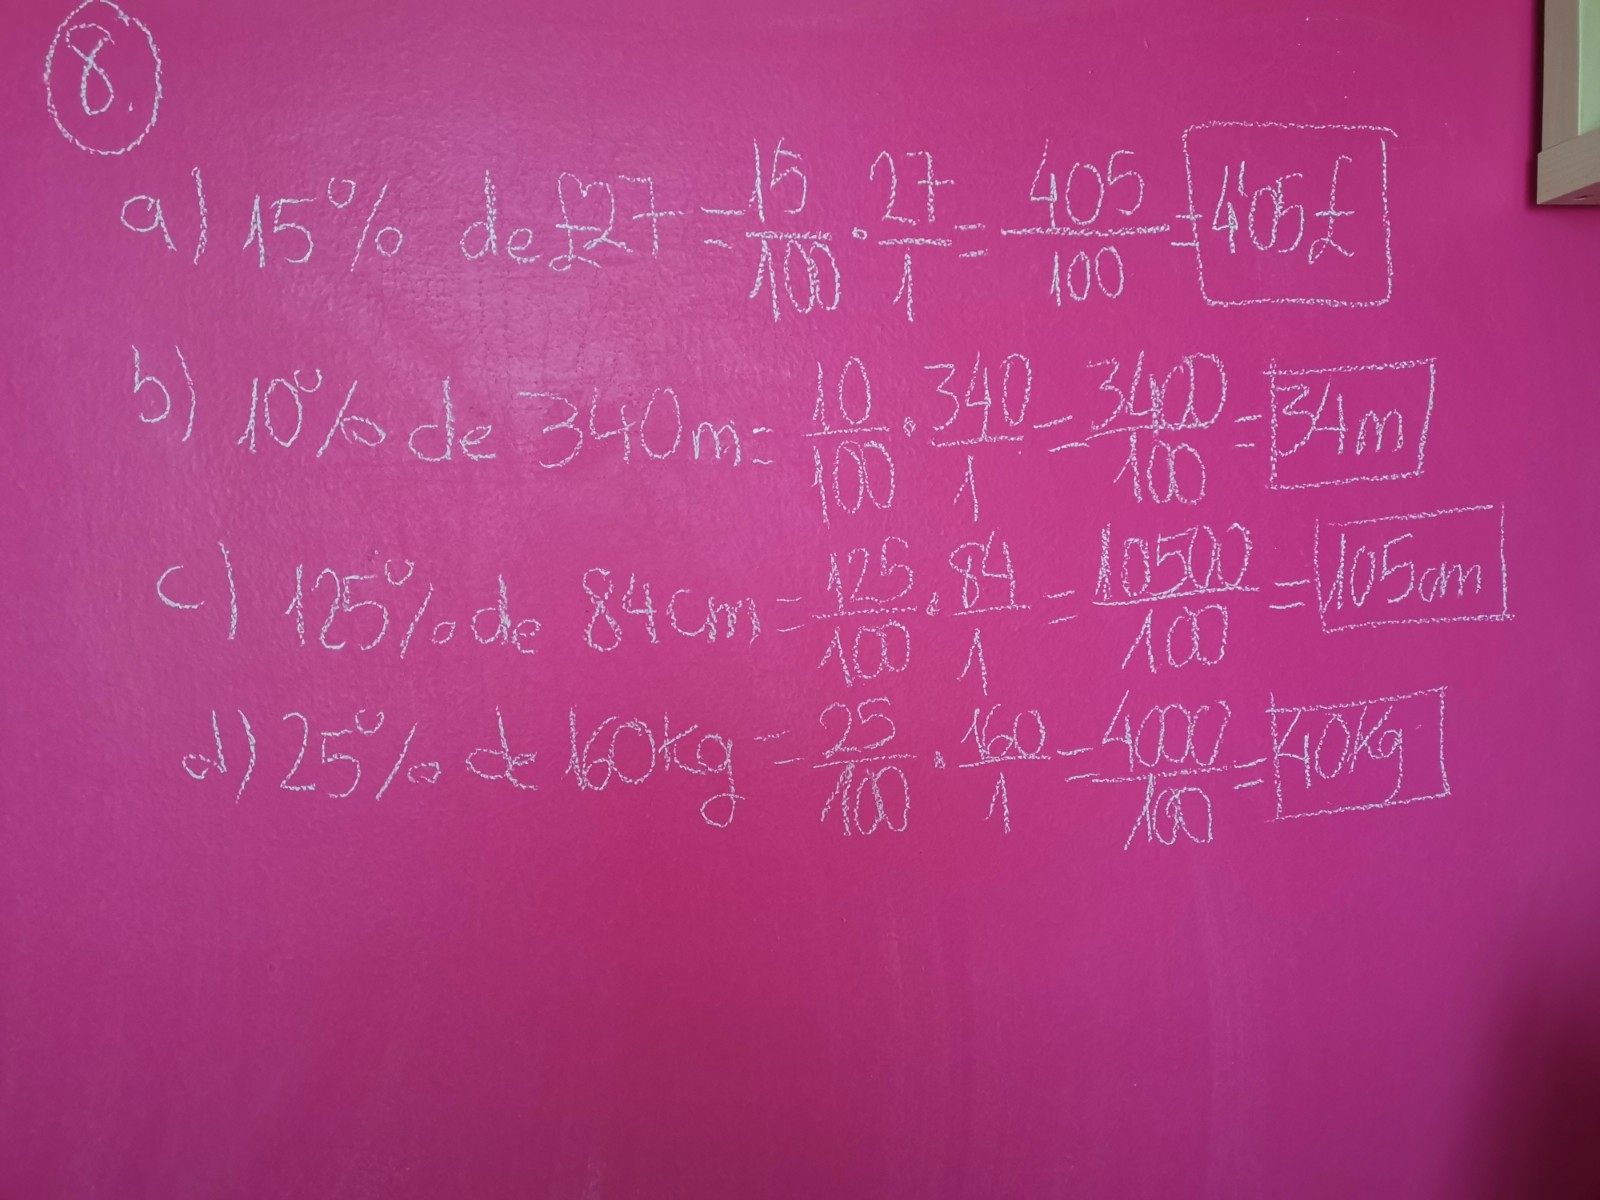 8.
a) 15% de £27 = 15/100 · 27/1 = 405/100 = 4'05£
b) 10% de 340m = 10/100 · 340/1 = 3400/100 = 34m
c) 125% de 84cm = 125/100 · 84/1 = 10500/100 = 105cm
d) 25% de 160kg = 25/100 · 160/1 = 4000/100 = 40kg